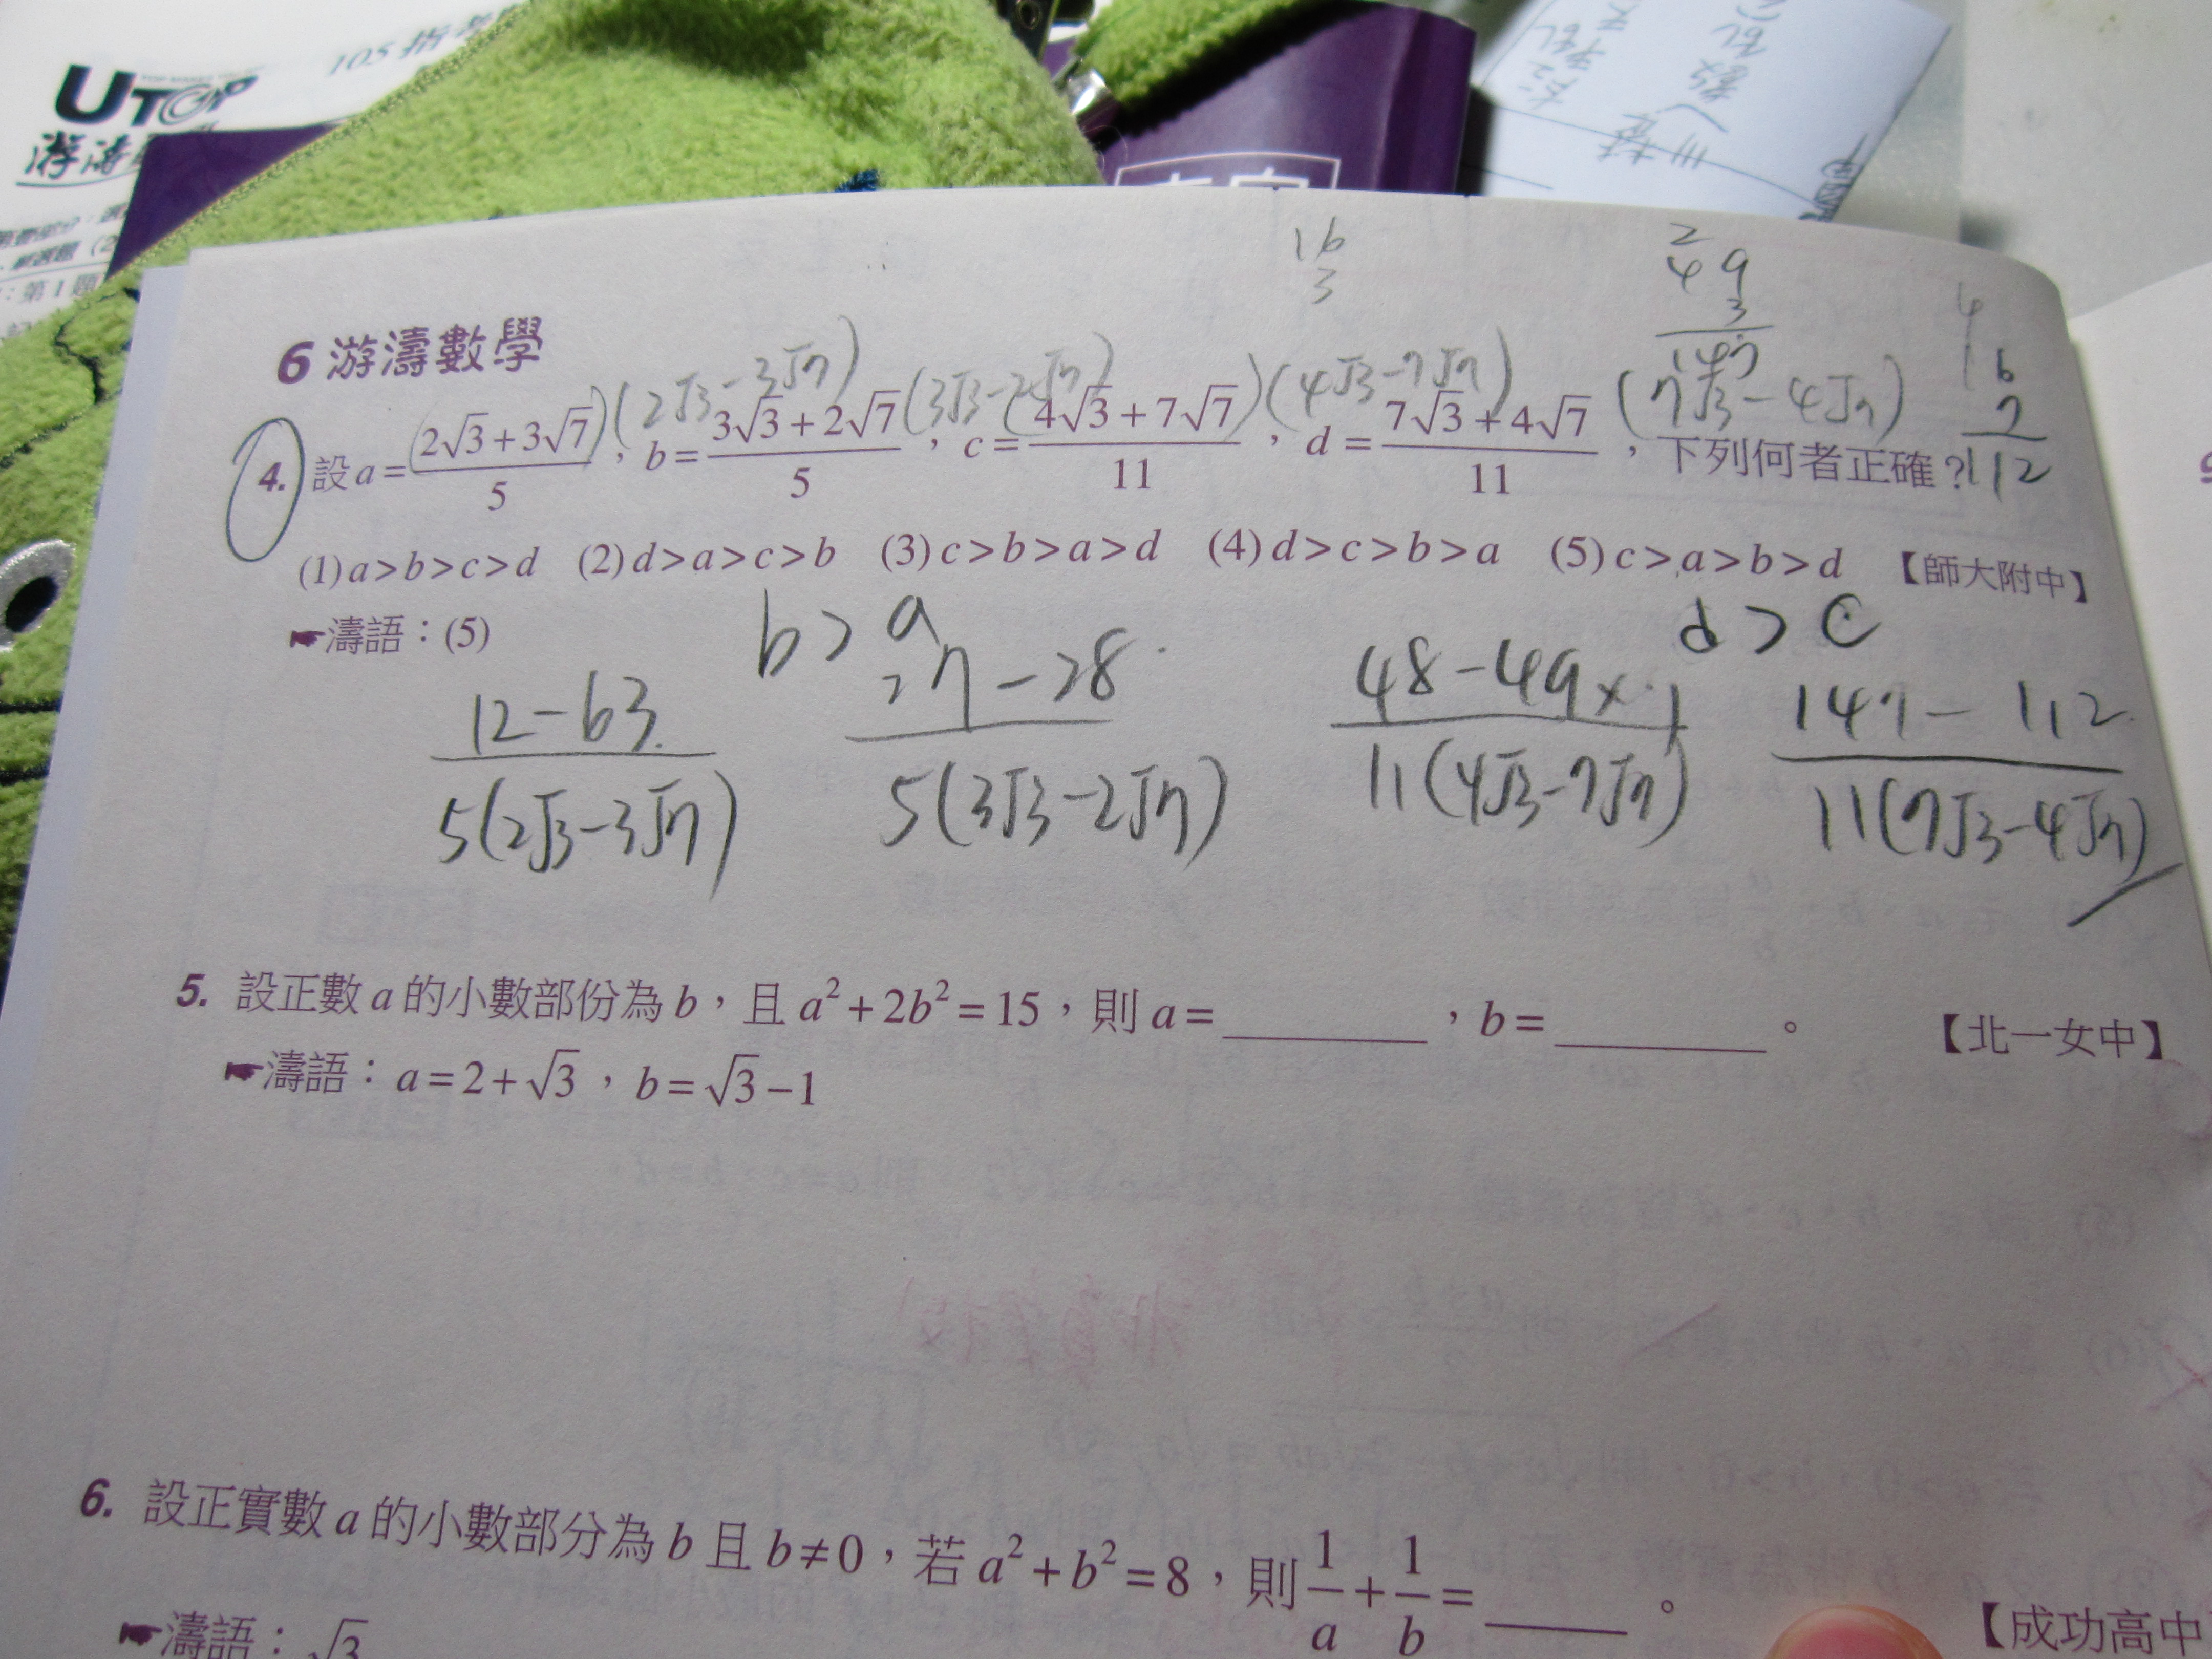 UTOP
105 指考
第1題
16
3
2
49
3
147
4
16
7
112
6 游濤數學
(2√3-3√7) (3√3-2√7) (4√3-7√7) (7√3-4√7)
4. 設 a = (2√3+3√7)/5，b = (3√3+2√7)/5，c = (4√3+7√7)/11，d = (7√3+4√7)/11，下列何者正確？
(1) a>b>c>d (2) d>a>c>b (3) c>b>a>d (4) d>c>b>a (5) c>a>b>d 【師大附中】
☛濤語：(5)
b > a
d > c
12-63 / 5(2√3-3√7)
27-28 / 5(3√3-2√7)
48-49× / 11(4√3-7√7)
147-112 / 11(7√3-4√7)
5. 設正數 a 的小數部份為 b，且 a²+2b²=15，則 a=________，b=________。 【北一女中】
☛濤語：a=2+√3，b=√3-1
6. 設正實數 a 的小數部分為 b 且 b≠0，若 a²+b²=8，則 1/a + 1/b = ______。
【成功高中
☛濤語：√3